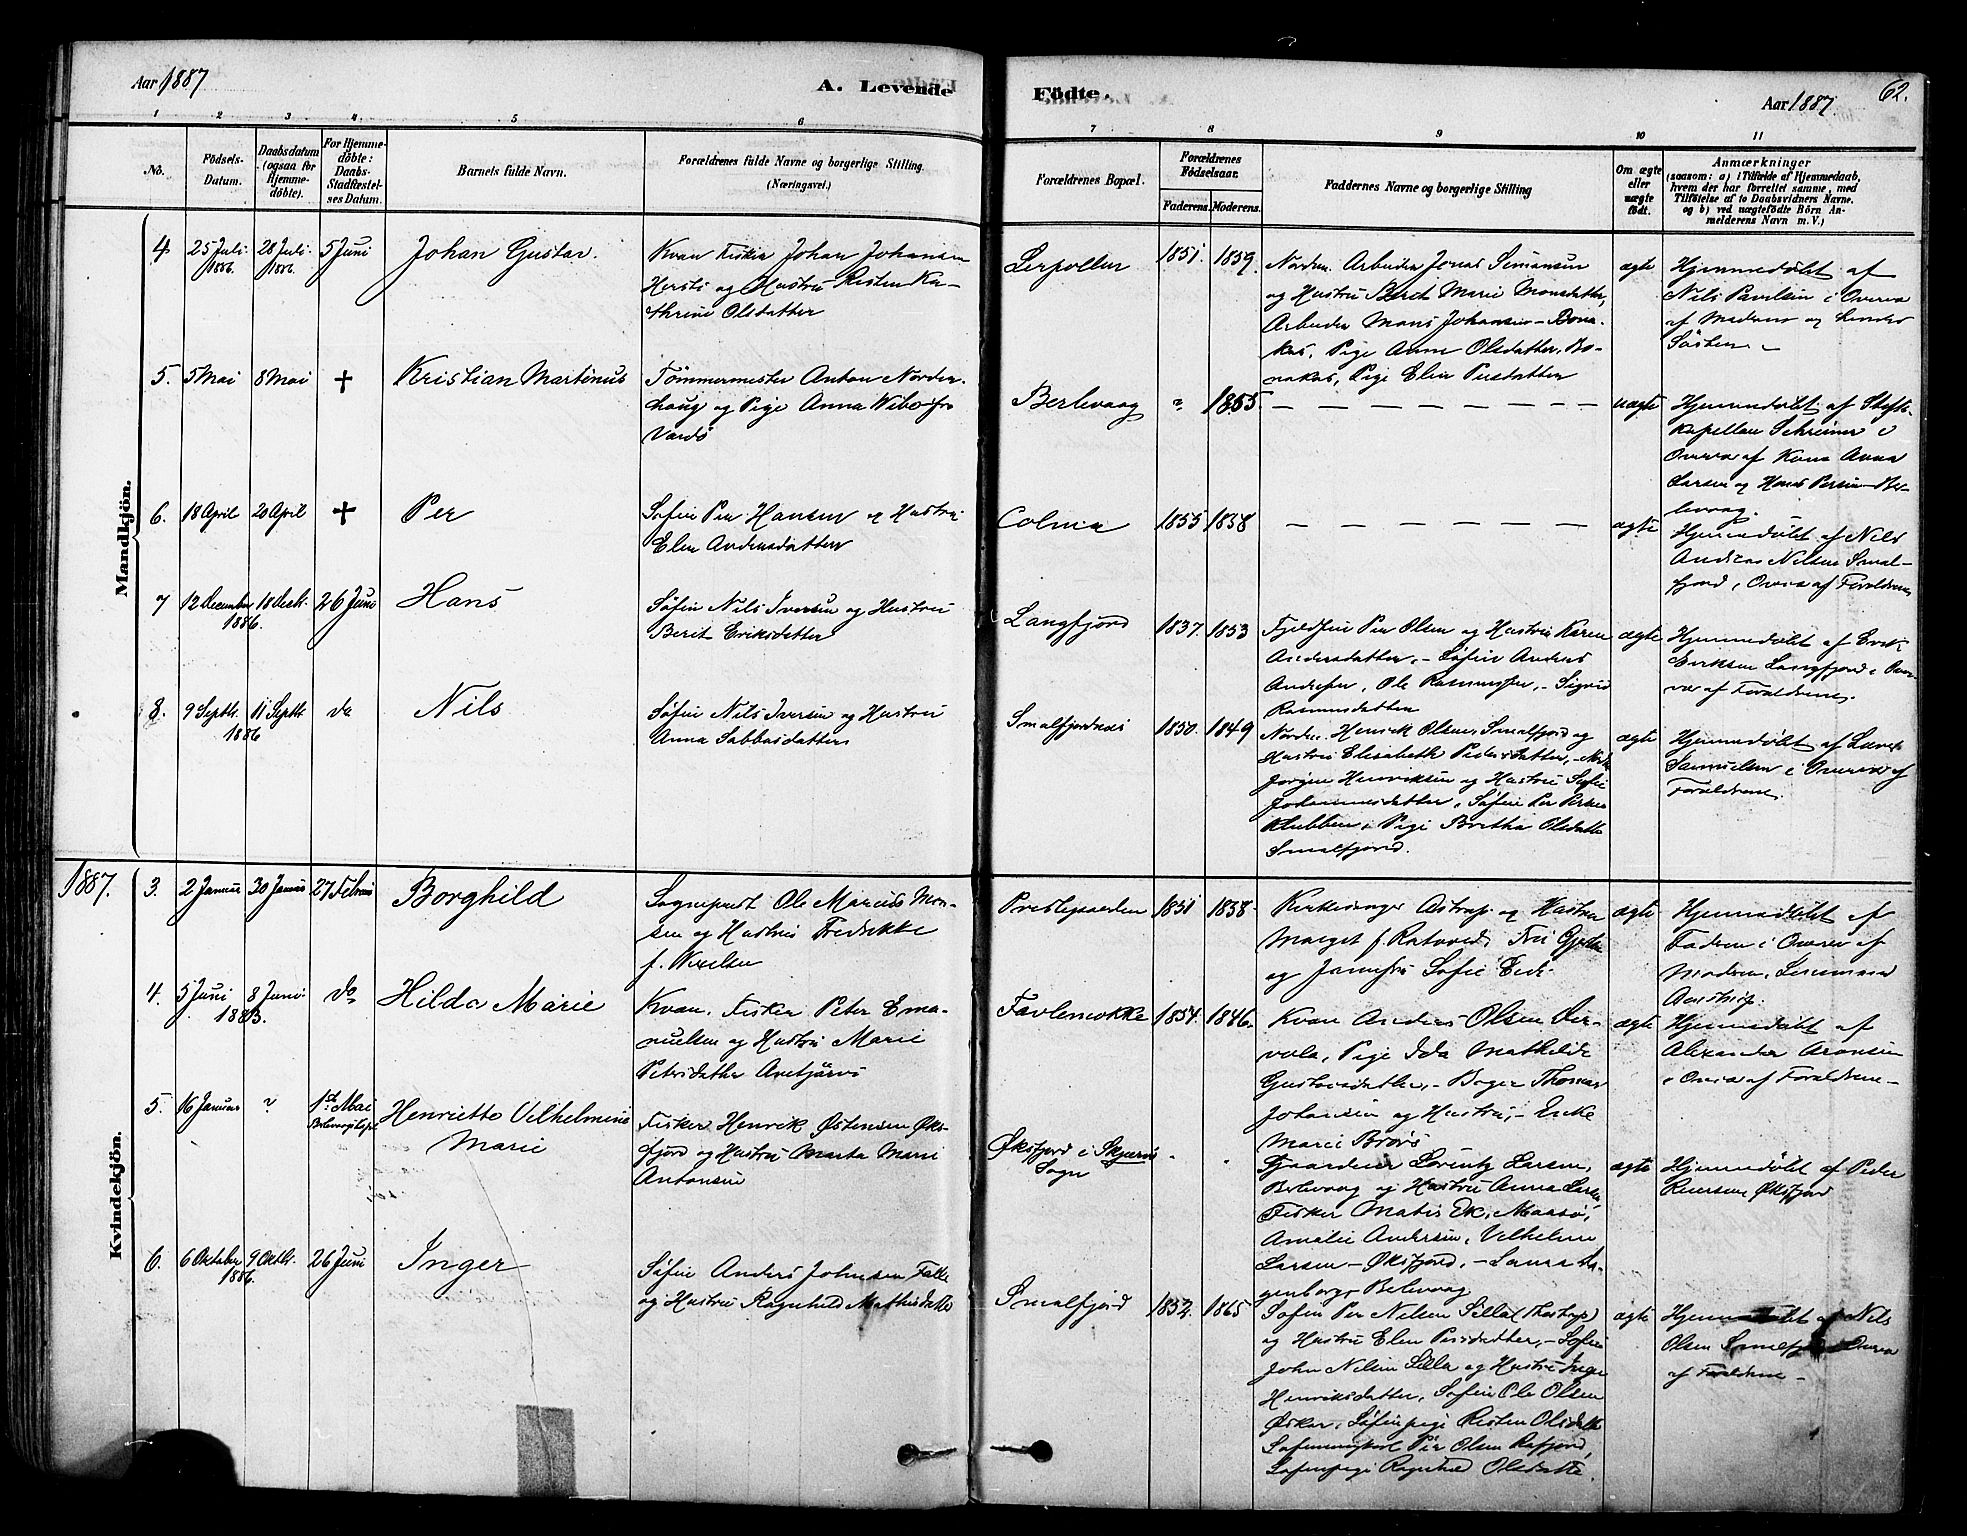 Aar 1887
A. Levende
Födte.
Aar 1887.
62.
1 2 3 4 5 6 7 8 9 10 11
No.
Födsels-
Datum.
Daabsdatum
(ogsaa for
Hjemme-
döbte).
For Hjemme-
döbte:
Daabs-
Stadfæstel-
ses Datum.
Barnets fulde Navn.
Forældrenes fulde Navne og borgerlige Stilling
(Næringsvei.)
Forældrenes Bopæl.
Forældrenes
Fødselsaar.
Faderens.
Moderens.
Faddernes Navne og borgerlige Stilling
Om ægte
eller
uægte
födt.
Anmærkninger
(saasom: a) i Tilfælde af Hjemmedaab,
hvem der har forrettet samme, med
Tilføielse af to Daabsvidners Navne.
og b) ved uægtefødte Börn An-
melderens Navn m. V.)
Mandkjön.
4
25 Juli
1886.
28 Juli
1886.
5 Juni
Johan Gustav.
Kvan Fisker Johan Johansen
og Hustru Risten Ka-
thrine Olsdatter
Lerpollen
1851.
1859.
Norden. Arbeider Jonas Simonsen
og Hustru Berit Marie Monsdatter,
Arbeider Mons Johansen - Bona-
kas, Pige Anne Olsdatter, Bo-
nakas, Pige Elen Persdatter
ægte
Hjemmedöbt af
Nils Paulsen i Overvær
af Moderen og hendes
Söster. -
5.
5 Mai
8 Mai
+
Kristian Martinus
Tømmermester Anton Norder-
haug og Pige Anna Wibe fra
Vardö
Berlevaag
?
1865.
uægte
Hjemmedöbt af Stifts-
kapellan Schreiner i
Overvær af Kona Anna
Larsen og Hans Persen Ber-
levaag.
6.
18 April
20 April
+
Per
Søfin Per Hansen og Hustru
Elen Andersdatter
Colma
1855
1858
ægte
Hjemmedöbt af Nils
Andreas Nilsen Smal-
fjord, Overvær af Forældrene
7
12 December
1886.
18 Decbr.
26 Juni
Hans
Søfin Nils Iversen og Hustru
Berit Eriksdatter
Langfjord
1837.
1853
Fjeldfin Per Olsen og Hustru Karen
Andersdatter, - Søfin Anders
Andersen, Ole Rasmussen, - Sigrid
Rasmusdatter
ægte
Hjemmedöbt af Erik
Eriksen Langfjord i Over-
vær af Forældrene.
8.
9 Septbr.
1886
11 Septbr.
do
Nils
Søfin Nils Iversen og Hustru
Anna Sabbasdatter
Smalfjordnæs
1850.
1849
Nordm. Henrik Olsen, Smalfjord og
Hustru Elisabeth Pedersdatter, -
Jørgen Henriksen og Hustru Sofie
Johannesdatter, Søfin Per Persen
Klubben, Pige Bretha Olsdatter
Smalfjord.
ægte
Hjemmedöbt af
Samuelsen i Overvær af
Forældrene.
1887.
Kvindekjön.
3.
2 Januar
30 Januar
27 Februar
Borghild
Sognepræst Ole Marcus Mon-
sen og Hustru Fredrikke
f. Wexelsen
Prestegaarden
1851
1858.
Kirkesanger Astrup og Hustru
Marget f. Ratvved, Fru Gjetha
og Jomfru Sofie Eide.
ægte
Hjemmedöbt af
Faderen i Overvær af
Moderen, Lensmand
Aastrup.
4.
5 Juni
1883.
8 Juni
do
Hilda Marie
Kvan. Fisker Peter Ema-
nuelsen og Hustru Marie
Petersdatter Anetjärvi
Tavlenokke
1854.
1846.
Kvan Anders Olsen
Pige Ida Mathilde
Gustavsdatter, - Bager Thomas
Johansen og Hustru, -
Marie Brors
ægte
Hjemmedöbt af
Alexander Aronsen
i Overvær af Forældrene -
5.
16 Januar
?
1ste Mai
Henriette Vilhelmine
Marie
Fisker Henrik Østensen Øks-
fjord og Hustru Marta Marie
Antonsen
Øksfjord i Skjervø
Sogn
Gaardeier Lorentz Larsen,
Berlevaag og Hustru Anna Larsen
Fisker Matis Ek, Maasø,
Amalie Andersen, Vilhelm
Larsen - Øksfjord, - Laura
Berlevaag
ægte
Hjemmedöbt af Peder
Øksfjord
6.
6 Oktober
1886.
9 Oktbr.
26 Juni
Inger
Søfin Anders Johnsen Falle
og Hustru Ragnhild Mathisdatter
Smalfjord
1852.
1865
Søfin Per Nilsen Silla
og Hustru Elen Persdatter, - Søfin
John Nilsen Silla og Hustru Inger
Henriksdatter, Søfin Ole Olsen
Øskar, Søfinpige Risten Olsdatter
Søfinungkarl Per Olsen
Søfinpige Ragnhild Olsdatter.
ægte
Hjemmedöbt af Nils
Olsen Smalfjord Overvær
af Forældrene -